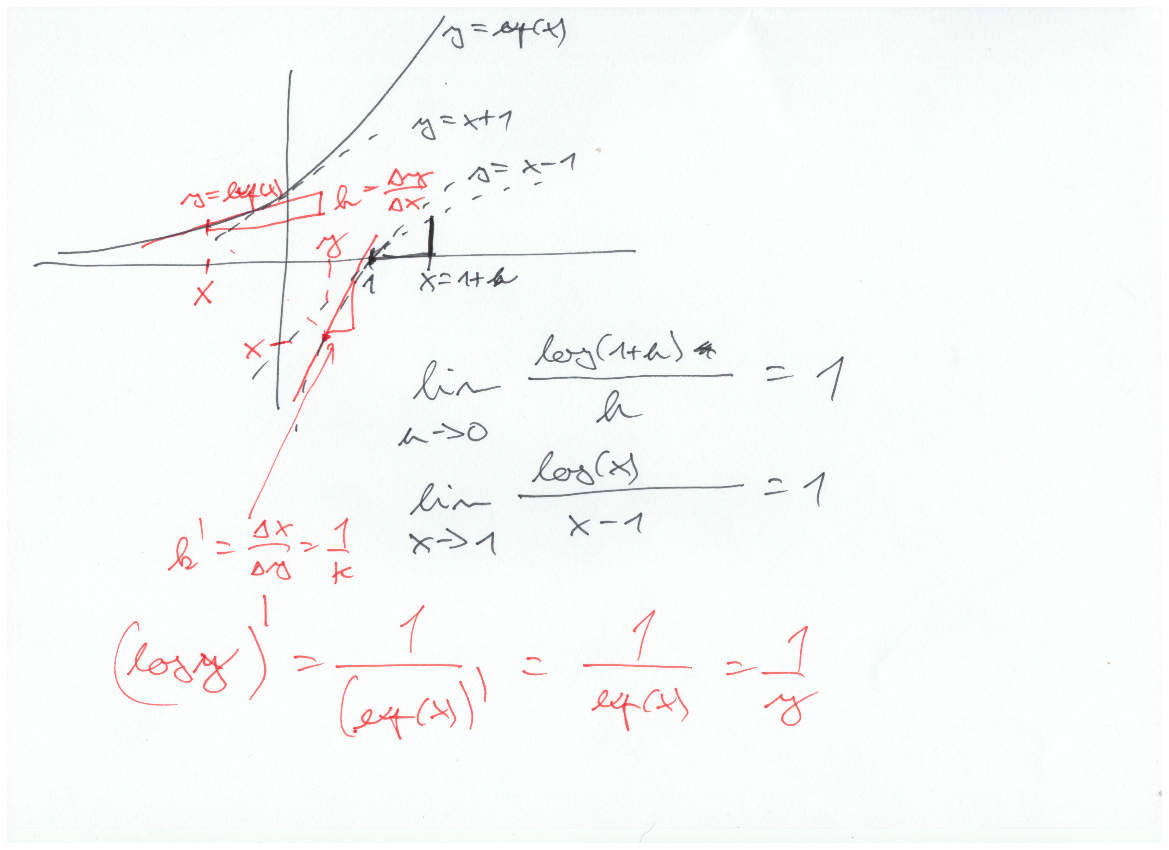 y = exp(x)
y = x+1
y = x-1
y = exp(x)
k = Δy/Δx
y
x
1
x = 1+h
x
lim h->0 log(1+h)/h = 1
lim x->1 log(x)/(x-1) = 1
k' = Δx/Δy = 1/k
(log y)' = 1/(exp(x))' = 1/exp(x) = 1/y